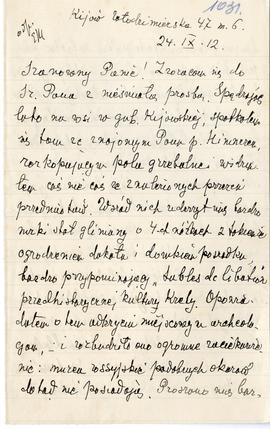 1031.
Kijów Wołodimirska 47 m. 6.
24. IX. 12.
Szanowny Panie! Zwracam się do
Sz. Pana z nieśmiałą prośbą. Spędzając
lato na wsi w gub. Kijowskiej, spotkałem
się tam ze znajomym Panu p. Himnerem,
rozkopującym pola grzebalne i widzia-
łem coś nie coś ze znalezionych przezeń
przedmiotów. Wśród nich uderzył mię bardzo
niski stół gliniany o 4-ch nóżkach z
ogrodzeniem dokoła i
bardzo przypominający „tables de libation"
przedhistorycznej kultury Krety. Opowia-
dałem o tem odkryciu miejscowym archeolo-
gom, i rozbudziło ono ogromne zaciekawie-
nie: muzea rossyjskie podobnych okazów
dotąd nie posiadają. Proszono mię bar-